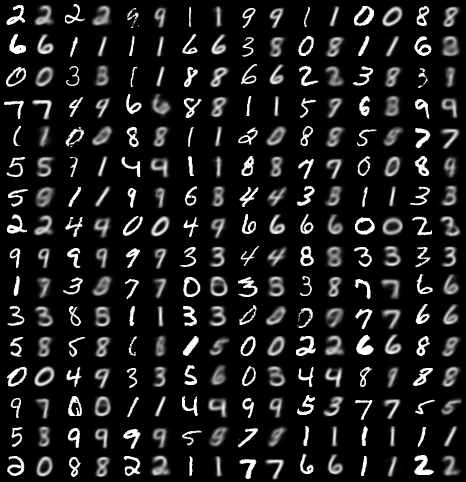 2 2 2 2 9 9 1 1 9 9 1 1 0 0 8 8
6 6 1 1 1 1 6 6 3 8 0 8 1 1 6 8
0 0 3 3 1 1 8 8 6 6 2 2 3 8 3 9
7 7 4 9 6 6 8 8 1 1 5 9 6 8 9 9
1 1 0 0 8 8 1 1 2 0 8 8 5 8 7 7
5 5 7 1 4 9 1 1 8 8 7 7 0 0 8 9
5 8 1 1 9 9 6 8 4 4 3 8 1 1 3 3
2 2 4 9 0 0 4 9 6 6 6 6 0 0 2 3
9 9 9 9 9 9 3 3 4 4 8 8 3 3 3 3
1 7 3 8 7 7 0 0 3 3 3 8 7 7 6 6
3 3 8 8 1 1 3 3 0 0 0 9 7 7 6 6
5 8 5 8 6 8 1 5 0 0 2 2 6 6 8 8
0 0 4 9 3 3 5 6 0 3 4 4 8 9 8 8
9 7 0 0 1 1 4 9 9 9 5 3 7 7 5 5
5 8 9 9 9 9 5 9 7 8 1 1 1 1 1 1
2 0 8 8 2 2 1 1 7 7 6 6 1 1 2 2